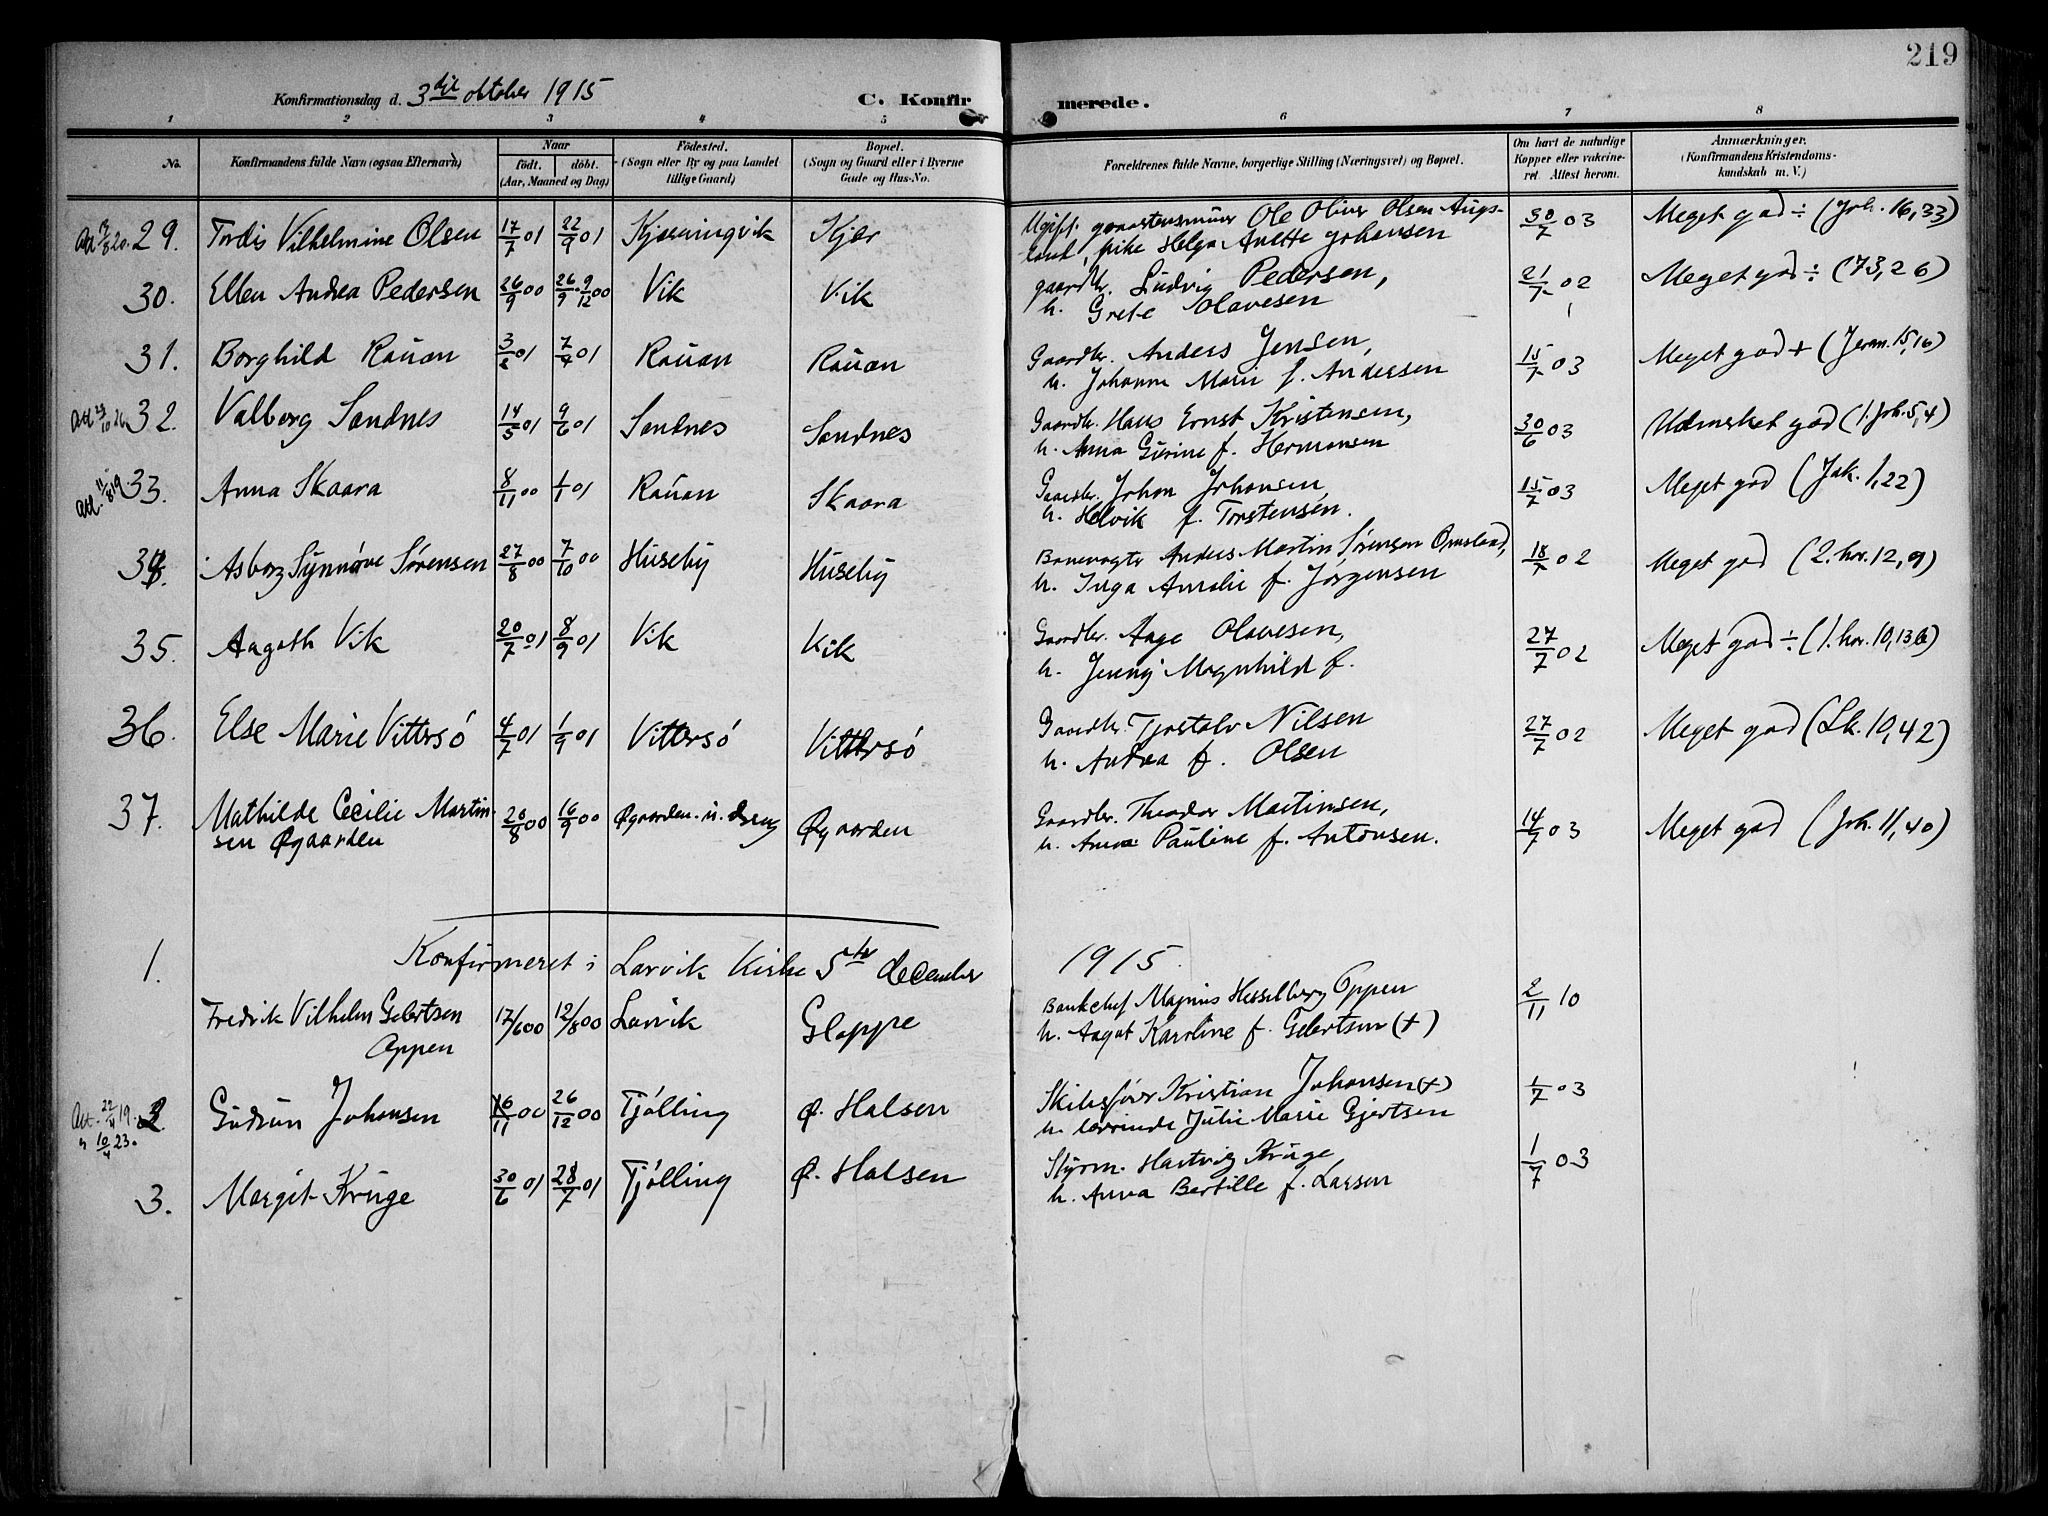 219
Konfirmationsdag d. 3dje oktober 1915
C. Konfirmerede.
1 2 3 4 5 6 7 8
No. Konfirmandens fulde Navn (ogsaa Efternavn)
Naar
födt. döbt.
(Aar, Maaned og Dag)
Födested.
(Sogn eller By og paa Landet
tillige Gaard)
Bopæl.
(Sogn og Gaard eller i Byerne
Gade og Hus-No.
Forældrenes fulde Navne, borgerlige Stilling (Næringsvei) og Bopæl.
Om havt de naturlige
Kopper eller vakcine-
ret. Attest herom.
Anmærkninger.
(Konfirmandens Kristendoms-
kundskab m. V.)
29. Tordis Vilhelmine Olsen 17/7 01 22/9 01 Kjær Ole Oliver Olsen Augs-
land, pike Helga Anette Johansen 30/7 03 Meget god ÷ (Joh. 16,33)
30. Ellen Andrea Pedersen 26/9 00 26/9 · 9/12 00 Vik Vik gaardbr. Ludvig Pedersen,
h. Grete Olavesen 21/7 02 Meget god ÷ (73,26)
31. Borghild Rauan 01 01 Rauan Rauan Gaardbr. Anders Jensen,
h. Johanne Marie f. Andersen 15/7 03 Meget god + (Jerem. 15,16)
32. Valborg Sandnes 14/5 01 9/6 01 Sandnes Sandnes Gaardbr. Hans Ernst Kristensen,
h. Anna Gurine f. Hermansen 30/6 03 Udmerket god (1. Joh. 5,4)
33. Anna Skaara 8/11 00 1/1 01 Rauan Skaara Gaardbr. Johan Johansen,
h. Helvik f. Torstensen. 15/7 03 Meget god (Jak. 1,22)
34. Asborg Synnøve Sørensen 27/8 00 7/10 00 Huseby Huseby Banevogter Anders Martin Sørensen Omsland,
h. Inga Amalie f. Jørgensen 18/7 02 Meget god (2. kor. 12,9)
35. Aagoth Vik 20/7 01 8/9 01 Vik Vik Gaardbr. Aage Olavesen,
h. Jenny Magnhild f. 27/7 02 Meget god ÷ (1. kor. 10,13b)
36. Else Marie Vittersó 4/7 01 1/9 01 Vittersó Vittersó Gaardbr. Tjostolv Nilsen
h. Andrea f. Olsen 27/7 02 Meget god (Lk. 10,42)
37. Mathilde Cecilie Martin-
sen Øgaarden 20/8 00 16/9 00 Øgaarden Øgaarden Gaardbr. Theodor Martinsen,
h. Anna Pauline f. Antonsen. 14/7 03 Meget god (Joh. 11,40)
Konfirmeret i Larvik Kirke 5te december 1915.
1. Fredrik Vilhelm Gebertsen
Oppen 17/6 00 12/8 00 Larvik Gloppe Bankchef Magnus Hesselberg Oppen
h. Aagot Karoline f. Gebertsen (+) 2/11 10
Att. 22/4 19. 2 Gudrun Johansen 16/11 00 26/12 00 Tjølling Ø. Halsen Skibsfører Kristian Johansen (+)
h. Julie Marie Gjertsen 1/7 03
3. Margit Kruge 30/6 01 28/7 01 Tjølling Ø. Halsen Styrm. Hartvig Kruge,
h. Anna Bertille f. Larsen 1/7 03